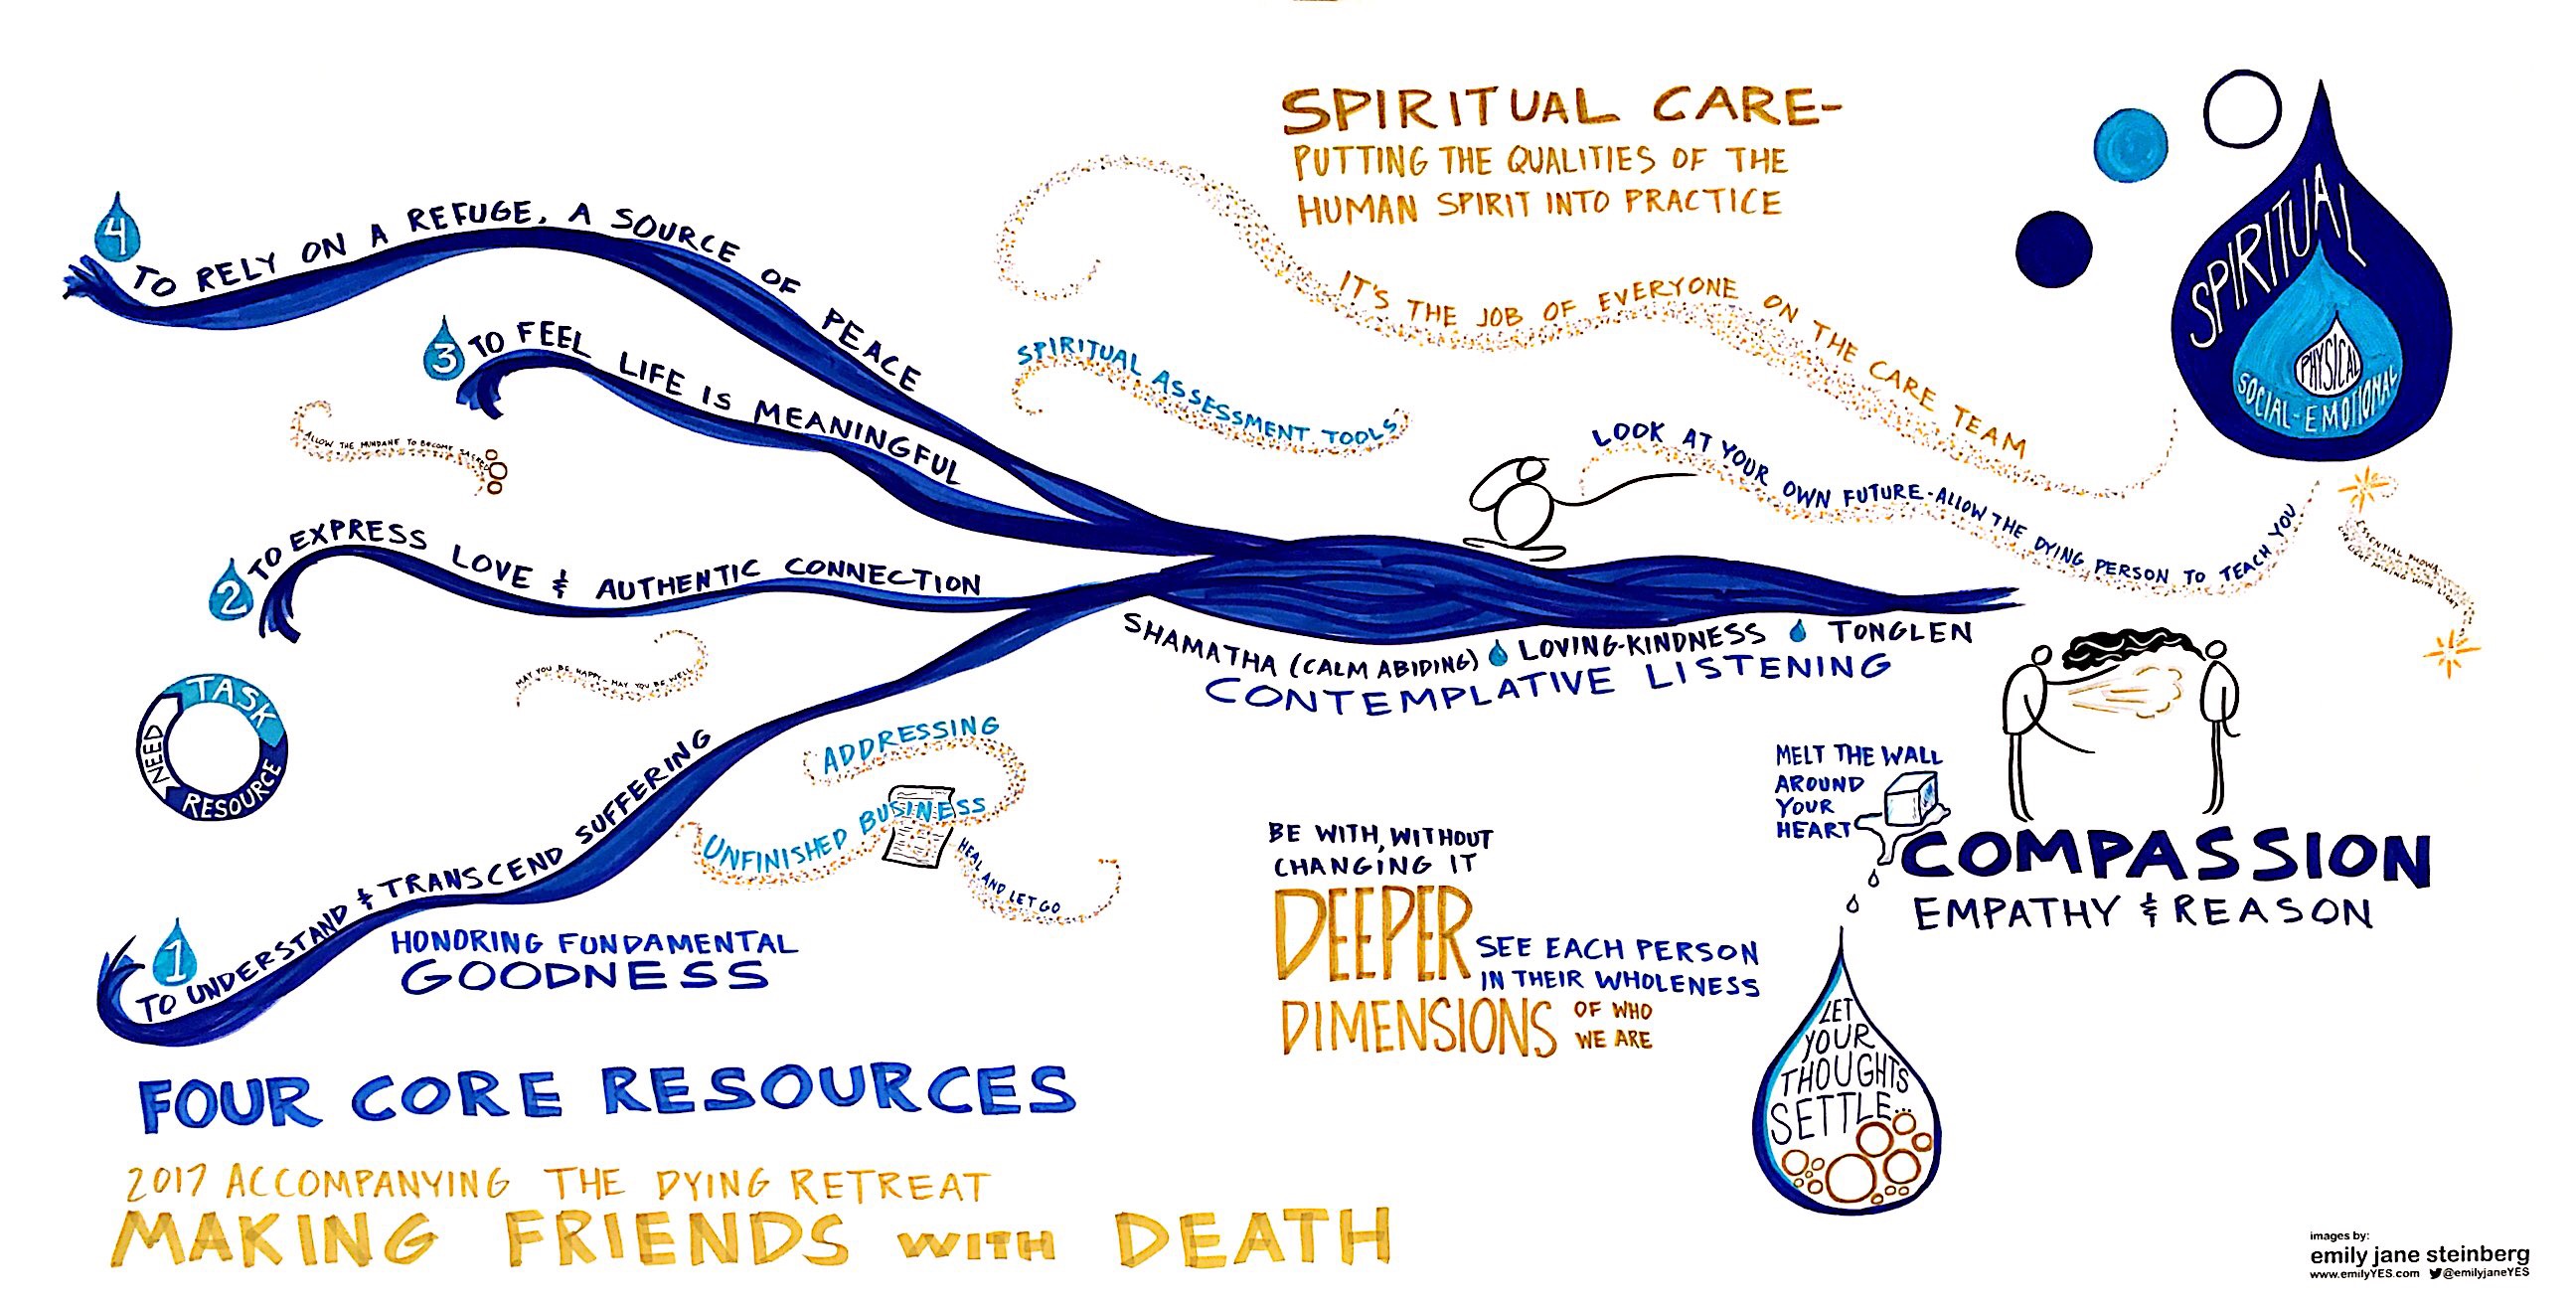 SPIRITUAL CARE-
PUTTING THE QUALITIES OF THE
HUMAN SPIRIT INTO PRACTICE
IT'S THE JOB OF EVERYONE ON THE CARE TEAM
SPIRITUAL ASSESSMENT TOOLS
LOOK AT YOUR OWN FUTURE-ALLOW THE DYING PERSON TO TEACH YOU
SPIRITUAL
SOCIAL-EMOTIONAL
PHYSICAL
ESSENTIAL PHOWA
4
TO RELY ON A REFUGE, A SOURCE OF PEACE
3
TO FEEL LIFE IS MEANINGFUL
ALLOW THE MUNDANE TO BECOME SACRED
2
TO EXPRESS LOVE & AUTHENTIC CONNECTION
MAY YOU BE HAPPY - MAY YOU BE WELL
TASK
RESOURCE
NEED
1
TO UNDERSTAND & TRANSCEND SUFFERING
ADDRESSING
UNFINISHED BUSINESS
HEAL AND LET GO
HONORING FUNDAMENTAL
GOODNESS
SHAMATHA (CALM ABIDING) LOVING-KINDNESS TONGLEN
CONTEMPLATIVE LISTENING
MELT THE WALL
AROUND
YOUR
HEART
COMPASSION
EMPATHY & REASON
BE WITH, WITHOUT
CHANGING IT
DEEPER
SEE EACH PERSON
IN THEIR WHOLENESS
DIMENSIONS
OF WHO
WE ARE
LET
YOUR
THOUGHTS
SETTLE...
FOUR CORE RESOURCES
2017 ACCOMPANYING THE DYING RETREAT
MAKING FRIENDS WITH DEATH
images by:
emily jane steinberg
www.emilyYES.com @emilyjaneYES